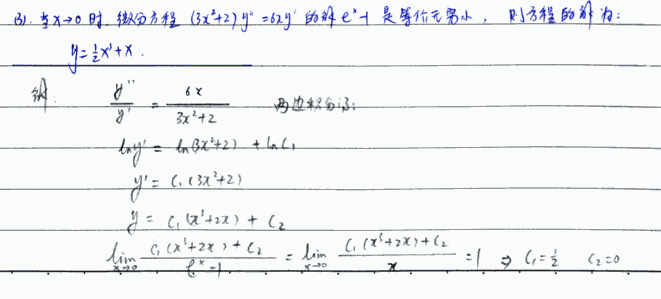 (3). 当x→0时, 微分方程 (3x²+2)y''=6xy' 的解 eˣ-1 是等价无穷小, 则方程的解为:
y=½x³+x.
解: y''/y' = 6x/(3x²+2) 两边积分得:
lny' = ln(3x²+2) + lnC₁
y' = C₁(3x²+2)
y = C₁(x³+2x) + C₂
lim x→0 (C₁(x³+2x)+C₂)/(eˣ-1) = lim x→0 (C₁(x³+2x)+C₂)/x = 1 ⇒ C₁=½ C₂=0